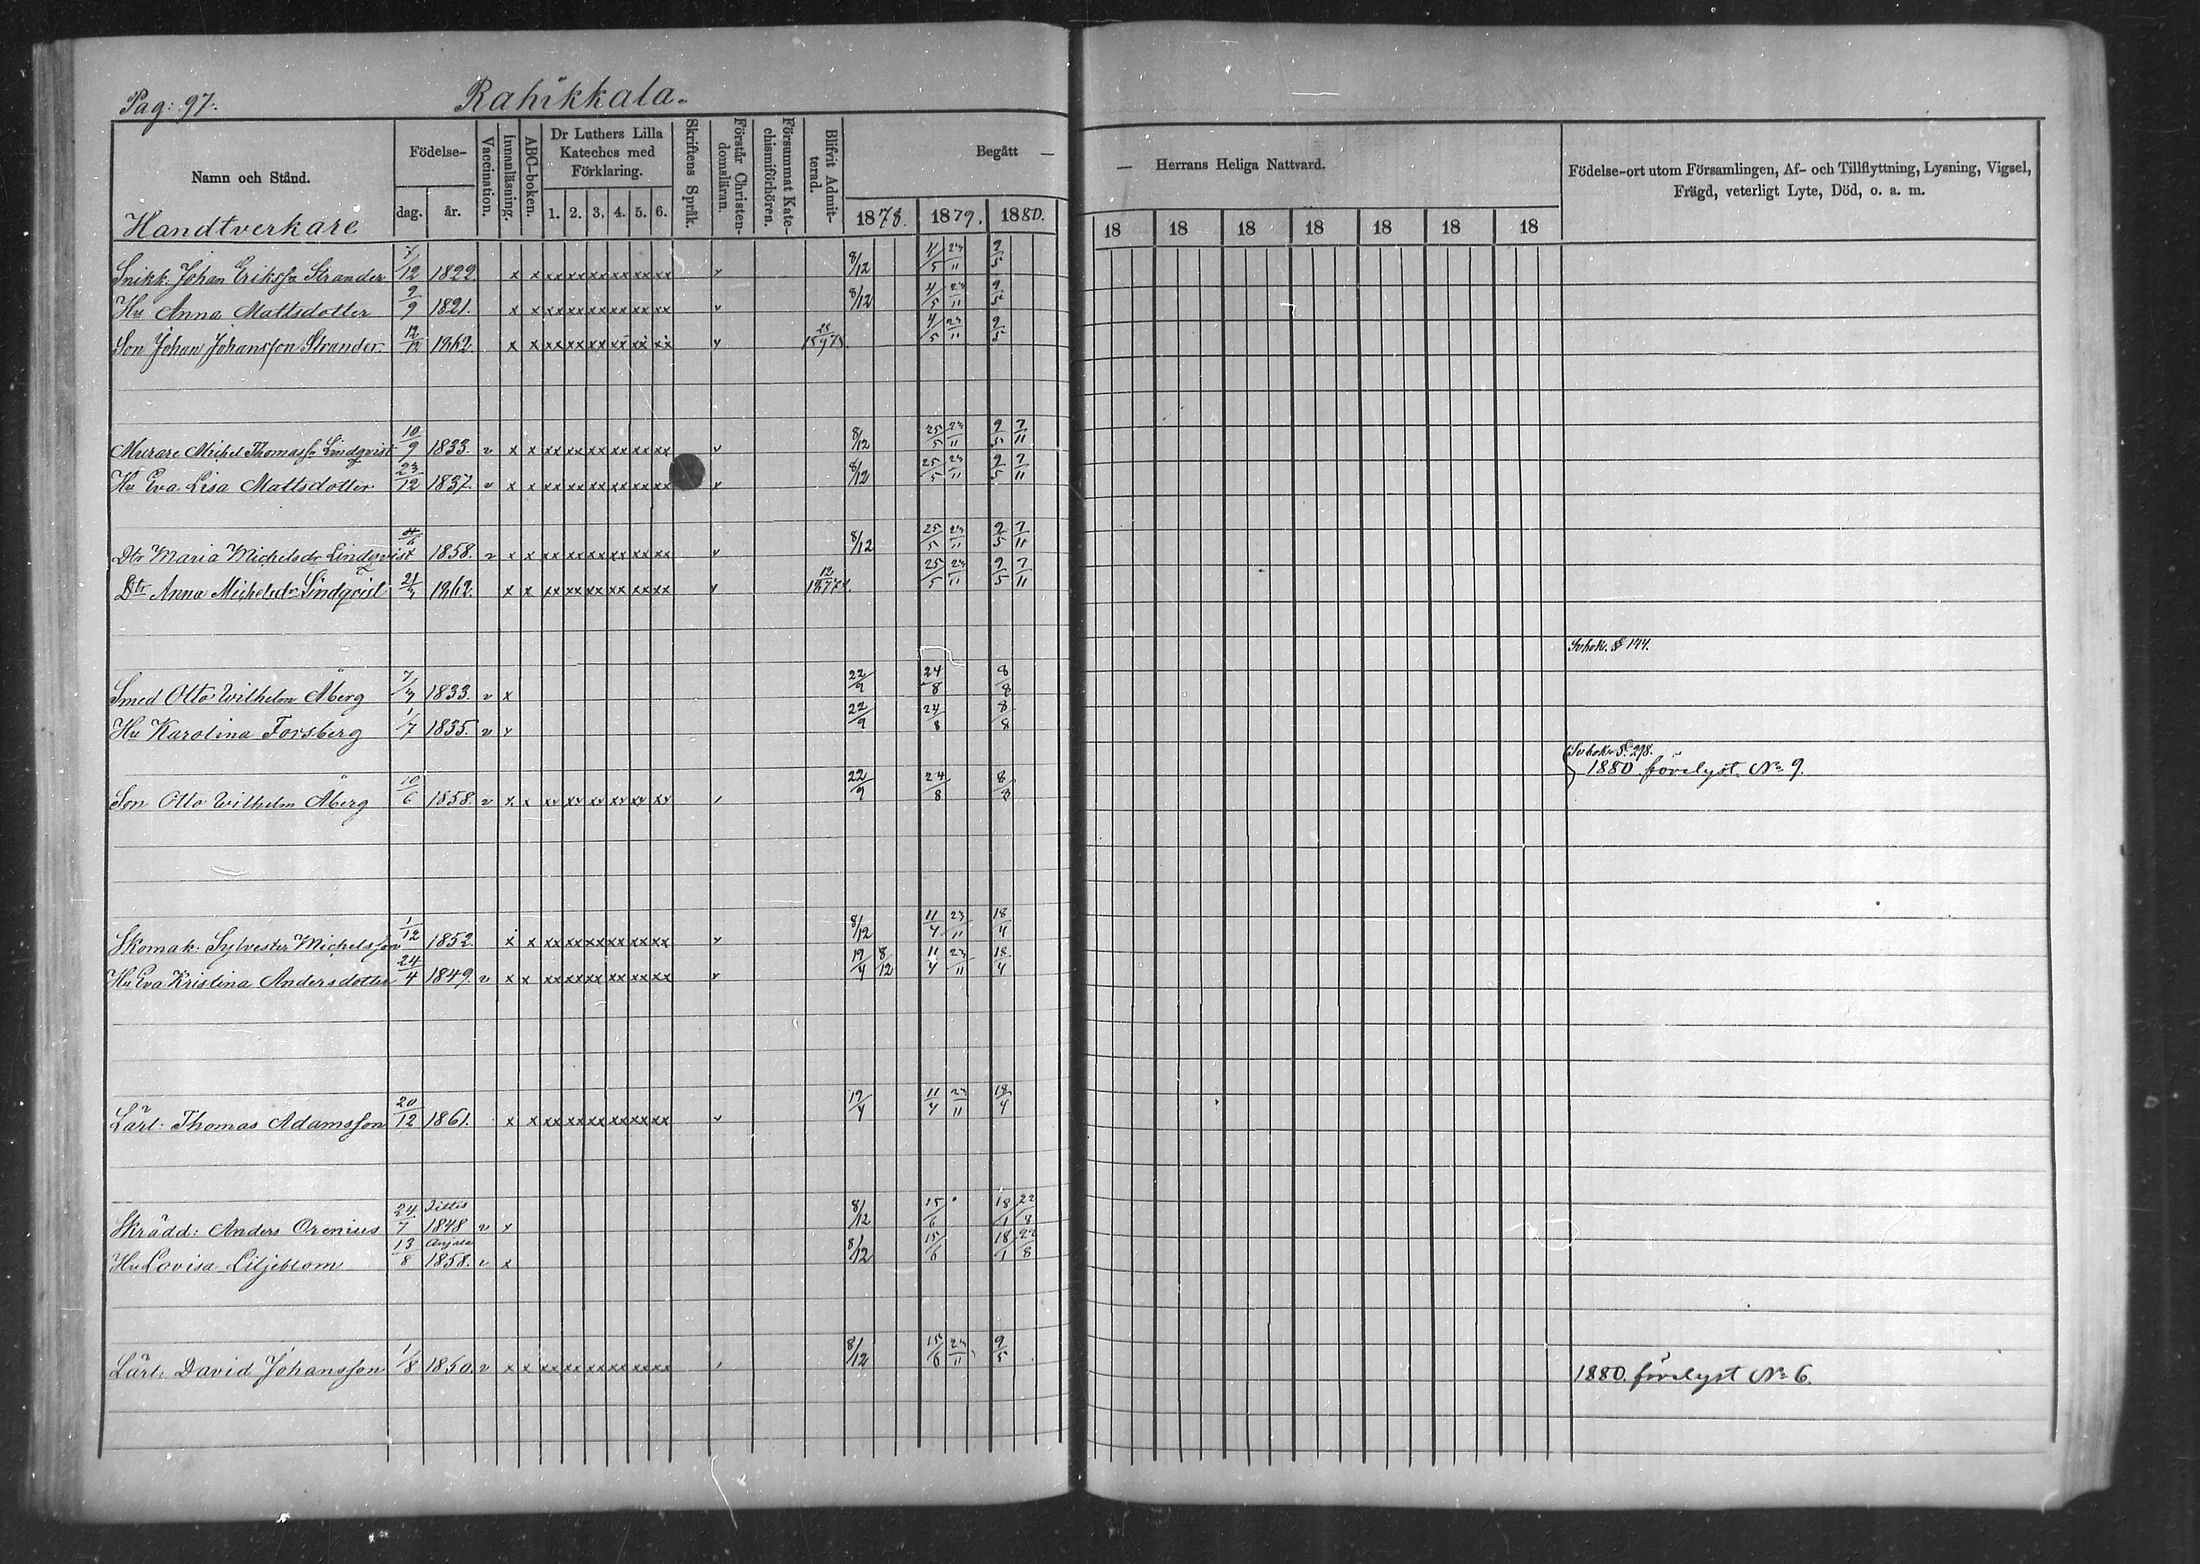 Pag: 97.
Rahikkala.
Namn och Stånd.
Födelse-
dag.
år.
Vaccination.
Innanläsning.
ABC-boken.
Dr Luthers Lilla
Kateches med
Förklaring.
1. 2. 3. 4. 5. 6.
Skriftens Språk.
Förstår Christen-
domsläran.
Försummat Kate-
chismiförhören.
Blifvit Admit-
terad.
Begått —
1878. 1879. 1880.
— Herrans Heliga Nattvard.
18 18 18 18 18 18 18
Födelse-ort utom Församlingen, Af- och Tillflyttning, Lysning, Vigsel,
Frägd, veterligt Lyte, Död, o. a. m.
Handtverkare
Snikk: Johan Eriksson Strander 1822 8/12 4/5 23/11 9/5
Hu Anna Mattsdotter 9/9 1821. 8/12 4/5 23/11 9/5
Son Johan Johansson Strander. 12/12 1862. 4/5 23/11 9/5
Murare Michel Thomass. Lindqvist 10/9 1833. v x x xx xx xx xx xx xx v 8/12 25/5 23/11 9/5 7/11
Hu Eva Lisa Mattsdotter 23/12 1837. v x x xx xx xx xx xx xx v 8/12 25/5 23/11 9/5 7/11
Dtr Maria Michelsdr Lindqvist 1858. v x x xx xx xx xx xx xx v 8/12 25/5 23/11 9/5 7/11
Dtr Anna Michelsdr Lindqvist 1862. x x xx xx xx xx xx xx v 25/5 23/11 9/5 7/11
Svbok. S 144.
Smed Otto Wilhelm Åberg 1833. v x 22/9 24/8 8/8
Hu Karolina Forsberg 1/7 1835. v x 22/9 24/8 8/8
Svbok. S. 298.
1880 förelyst No 9.
Son Otto Wilhelm Åberg 10/6 1858. v x x xv xv xv xv xv xv 22/9 24/8 8/8
Skomak: Sylvester Michelsson 1/12 1852. x x xx xx xx xx xx xx v 8/12 11/4 23/11 18/4
Hu Eva Kristina Andersdotter 24/4 1849. v x x xx xx xx xx xx xx v 19/4 8/12 11/4 23/11 18/4
Lärl: Thomas Adamsson 20/12 1861. x x xx xx xx xx xx xx v 19/4 11/4 23/11 18/4
Jittis
Skrädd: Anders Orenius 24/7 1848 v x 8/12 15/6 18/1 22/8
Anjala
Hu Lovisa Liljeblom 13/8 1858. v x 8/12 15/6 18/1 22/8
Lärl: David Johansson 1/8 1850. v x x xx xx xx xx xx xx 8/12 15/6 23/11 9/5
1880. förelyst No 6.